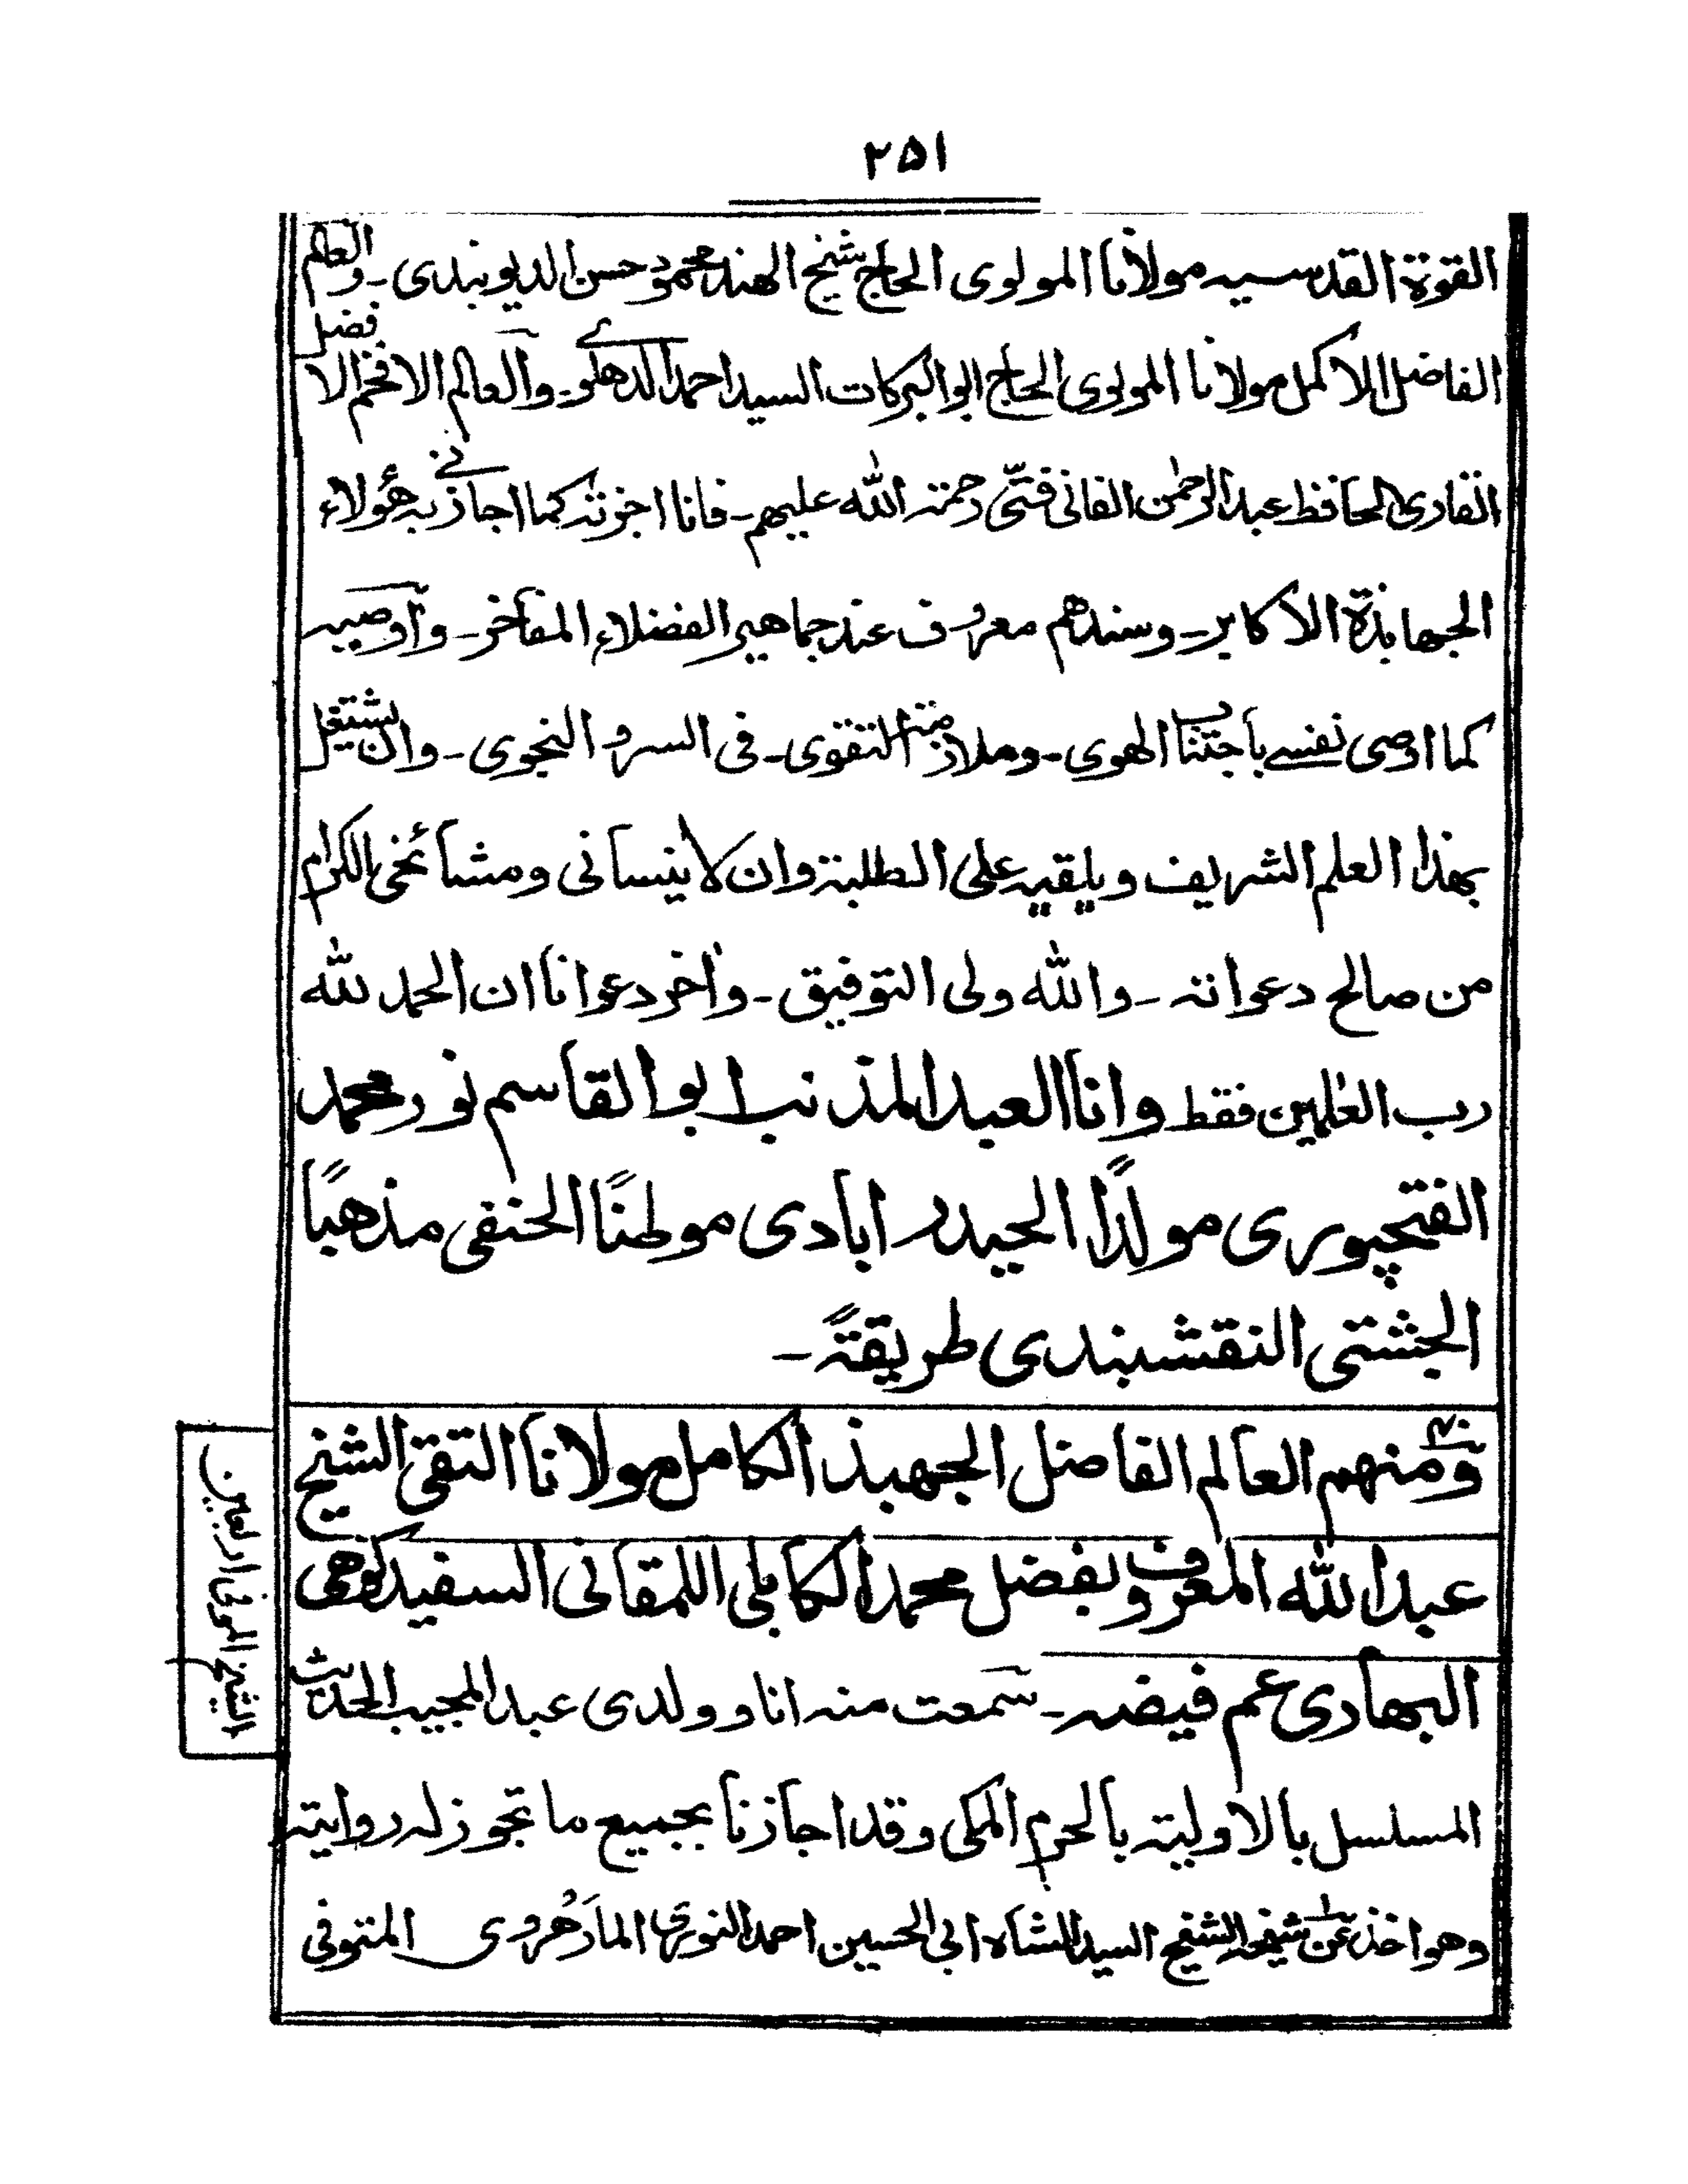 ۲۵۱
القوة القدسيه مولانا المولوى الحاج شيخ الهند محمود حسن الديوبندى۔ والعالم
الفاضل الاكمل مولانا المولوى الحاج ابوالبركات السيد احمد الدهلوے۔ والعالم الافخم الافضل
القارى الحافظ عبد الرحمٰن الفانى فتّى رحمته الله عليهم۔ فانا اجزته كما اجازنے به هؤلاء
الجهابذة الاكابر۔ وسندهم معروف عند جماهير الفضلاء المفاخر۔ واوصيه
كما اوصى نفسے باجتناب الهوى۔ وملازمته التقوى۔ فى السر و النجوى۔ وان يشتغل
بهذا العلم الشريف ويلقيه على الطلبة وان لا ينسانى ومشائخى الكرام
من صالح دعواته۔ والله ولى التوفيق۔ واٰخر دعوانا ان الحمد لله
رب العٰلمين فقط وانا العبد المذنب ابو القاسم نور محمد
الفتحپورى مولدًا الحيدر ابادى موطنًا الحنفى مذهبًا
الجشتى النقشبندى طريقةً۔
ومنهم العالم الفاضل الجهبذ الكامل مولانا التقى الشيخ
عبد الله المعروف بفضل محمد الكابلى اللمقانى السفيد كوهى
البهادرى عم فيضه۔ سمعت منه انا و ولدى عبد المجيب الحديث
المسلسل بالاوليته بالحرم المكى وقد اجازنا بجميع ما تجوز له روايته
وهو اخذ عن شيخه الشيخ السيد الشاه ابى الحسين احمد النورى المارهروى المتوفى
الشيخ الموفى اربعين